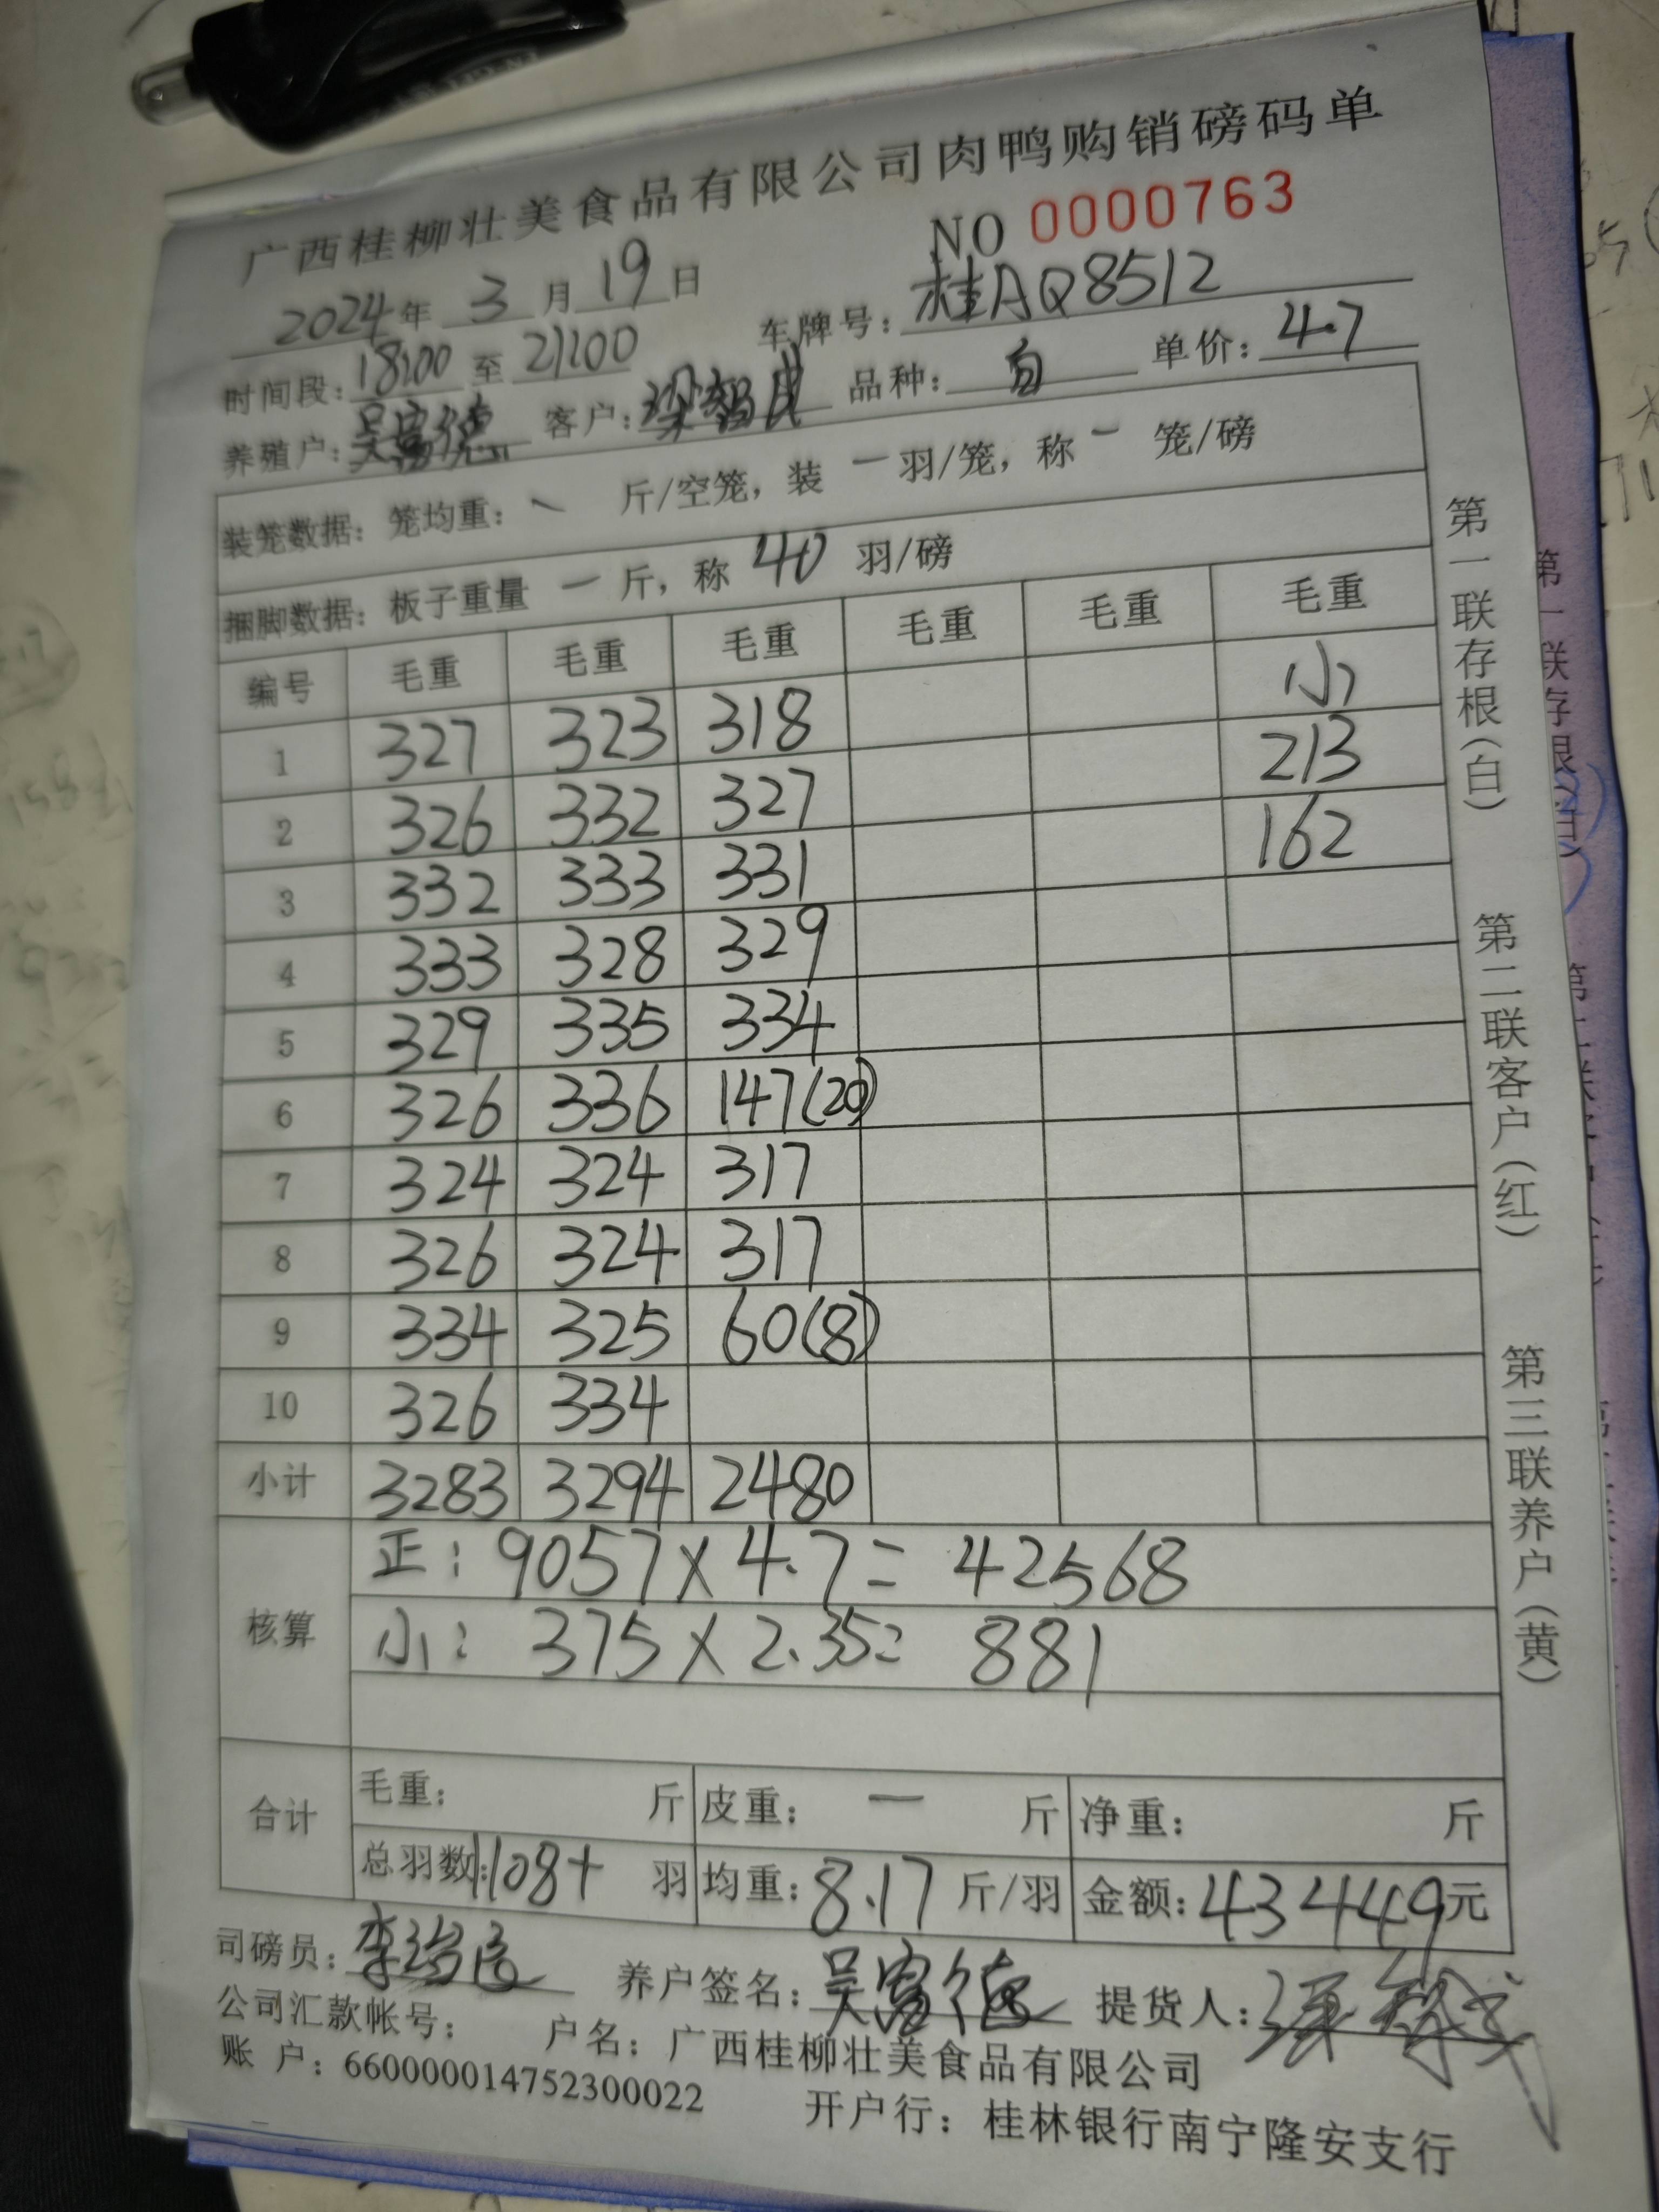 广西桂柳壮美食品有限公司肉鸭购销磅码单
NO 0000763
2024年 3 月 19 日
车牌号: 桂AQ8512
时间段: 18:00 至 21:00
养殖户: 吴富德 客户: 梁智 品种: 白 单价: 4.7
装笼数据: 笼均重: 一 斤/空笼, 装 一 羽/笼, 称 一 笼/磅
捆脚数据: 板子重量 一 斤, 称 40 羽/磅
编号 毛重 毛重 毛重 毛重 毛重 毛重
1 327 323 318 小
2 326 332 327 213
3 332 333 331 162
4 333 328 329
5 329 335 334
6 326 336 147(20)
7 324 324 317
8 326 324 317
9 334 325 60(8)
10 326 334
小计 3283 3294 2480
核算
正: 9057×4.7= 42568
小: 375×2.35= 881
合计
毛重: 斤 皮重: 一 斤 净重: 斤
总羽数: 1108+ 羽 均重: 8.17 斤/羽 金额: 43449元
司磅员: 李 养户签名: 吴富德 提货人:
公司汇款帐号: 户名: 广西桂柳壮美食品有限公司
账 户: 660000014752300022 开户行: 桂林银行南宁隆安支行
第一联存根(白) 第二联客户(红) 第三联养户(黄)